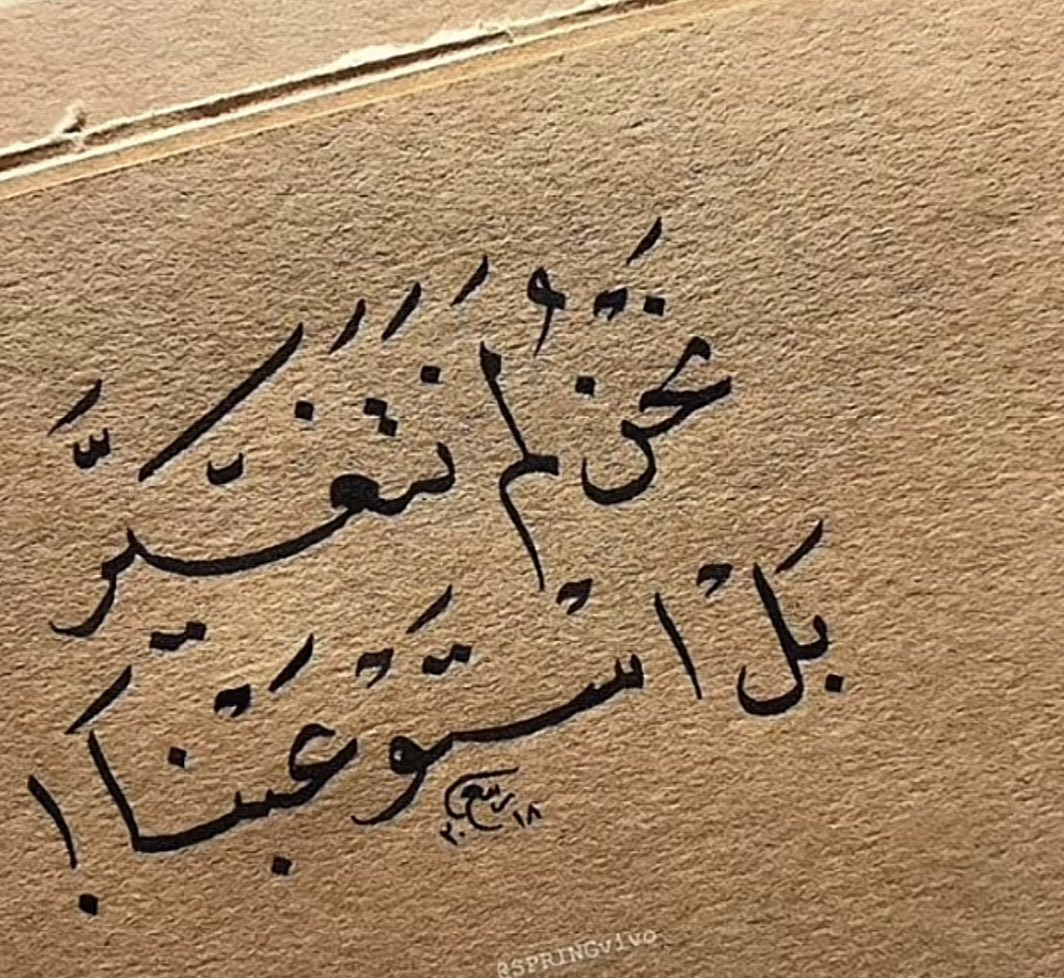 نَحْنُ لَمْ نَتَغَيَّرَ
بَلْ اسْتَوْعَبْنَا !
ربيع
٢٠١٨
@SPRINGvivo